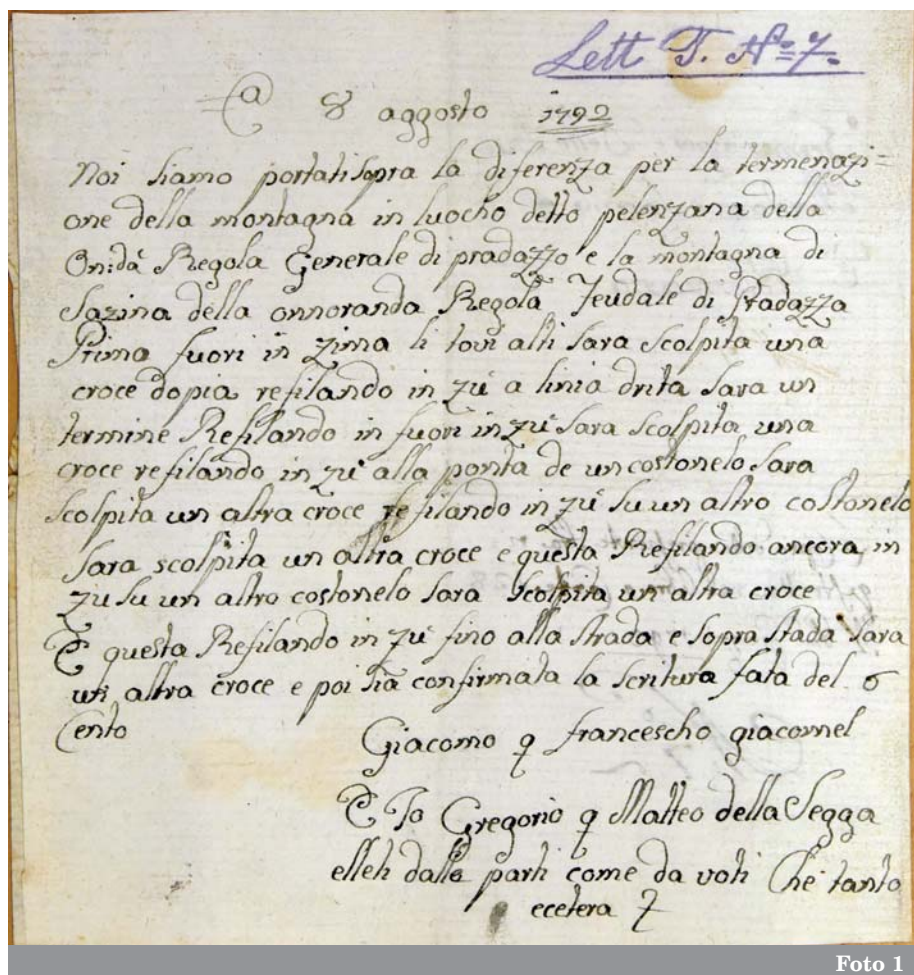 Lett T. N.º 7.
a 8 aggosto 1792
Noi siamo portati sopra la diferenza per la termenazi=
one della montagna in luocho detto pelenzana della
On:da Regola Generale di pradazzo e la montagna di
Sazina della onnoranda Regola Feudale di Pradazza
Prima fuori in zima li tovi alti sara scolpita una
croce dopia refilando in zu a linia drita sara un
termine Refilando in fuori in zu sara scolpita una
croce refilando in zu alla ponta de un costonelo sara
scolpita un altra croce refilando in zu su un altro costonelo
sara scolpita un altra croce e questa Refilando ancora in
zu su un altro costonelo sara scolpita un altra croce
E questa Refilando in zu fino alla strada e sopra stada sara
un altra croce e poi sia confirmata la scritura fata del 6
Cento
Giacomo q francescho giacomel
E Io Gregorio q Matteo della Segga
elleti dalle parti come da voti Che tanto
ecetera
Foto 1